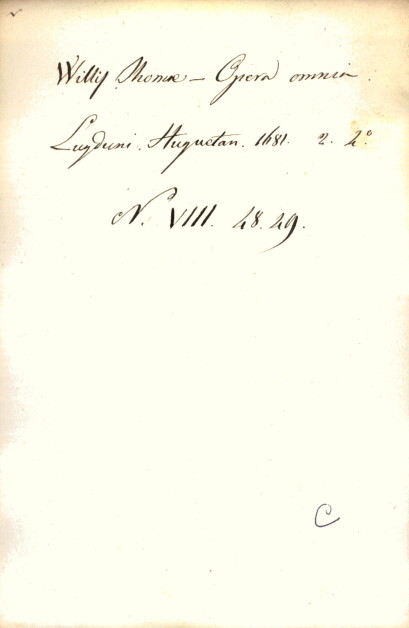 Willis Thomæ – Opera omnia.
Lugduni. Huguetan. 1681. 2. 4º
N. VIII. 48. 49.
C